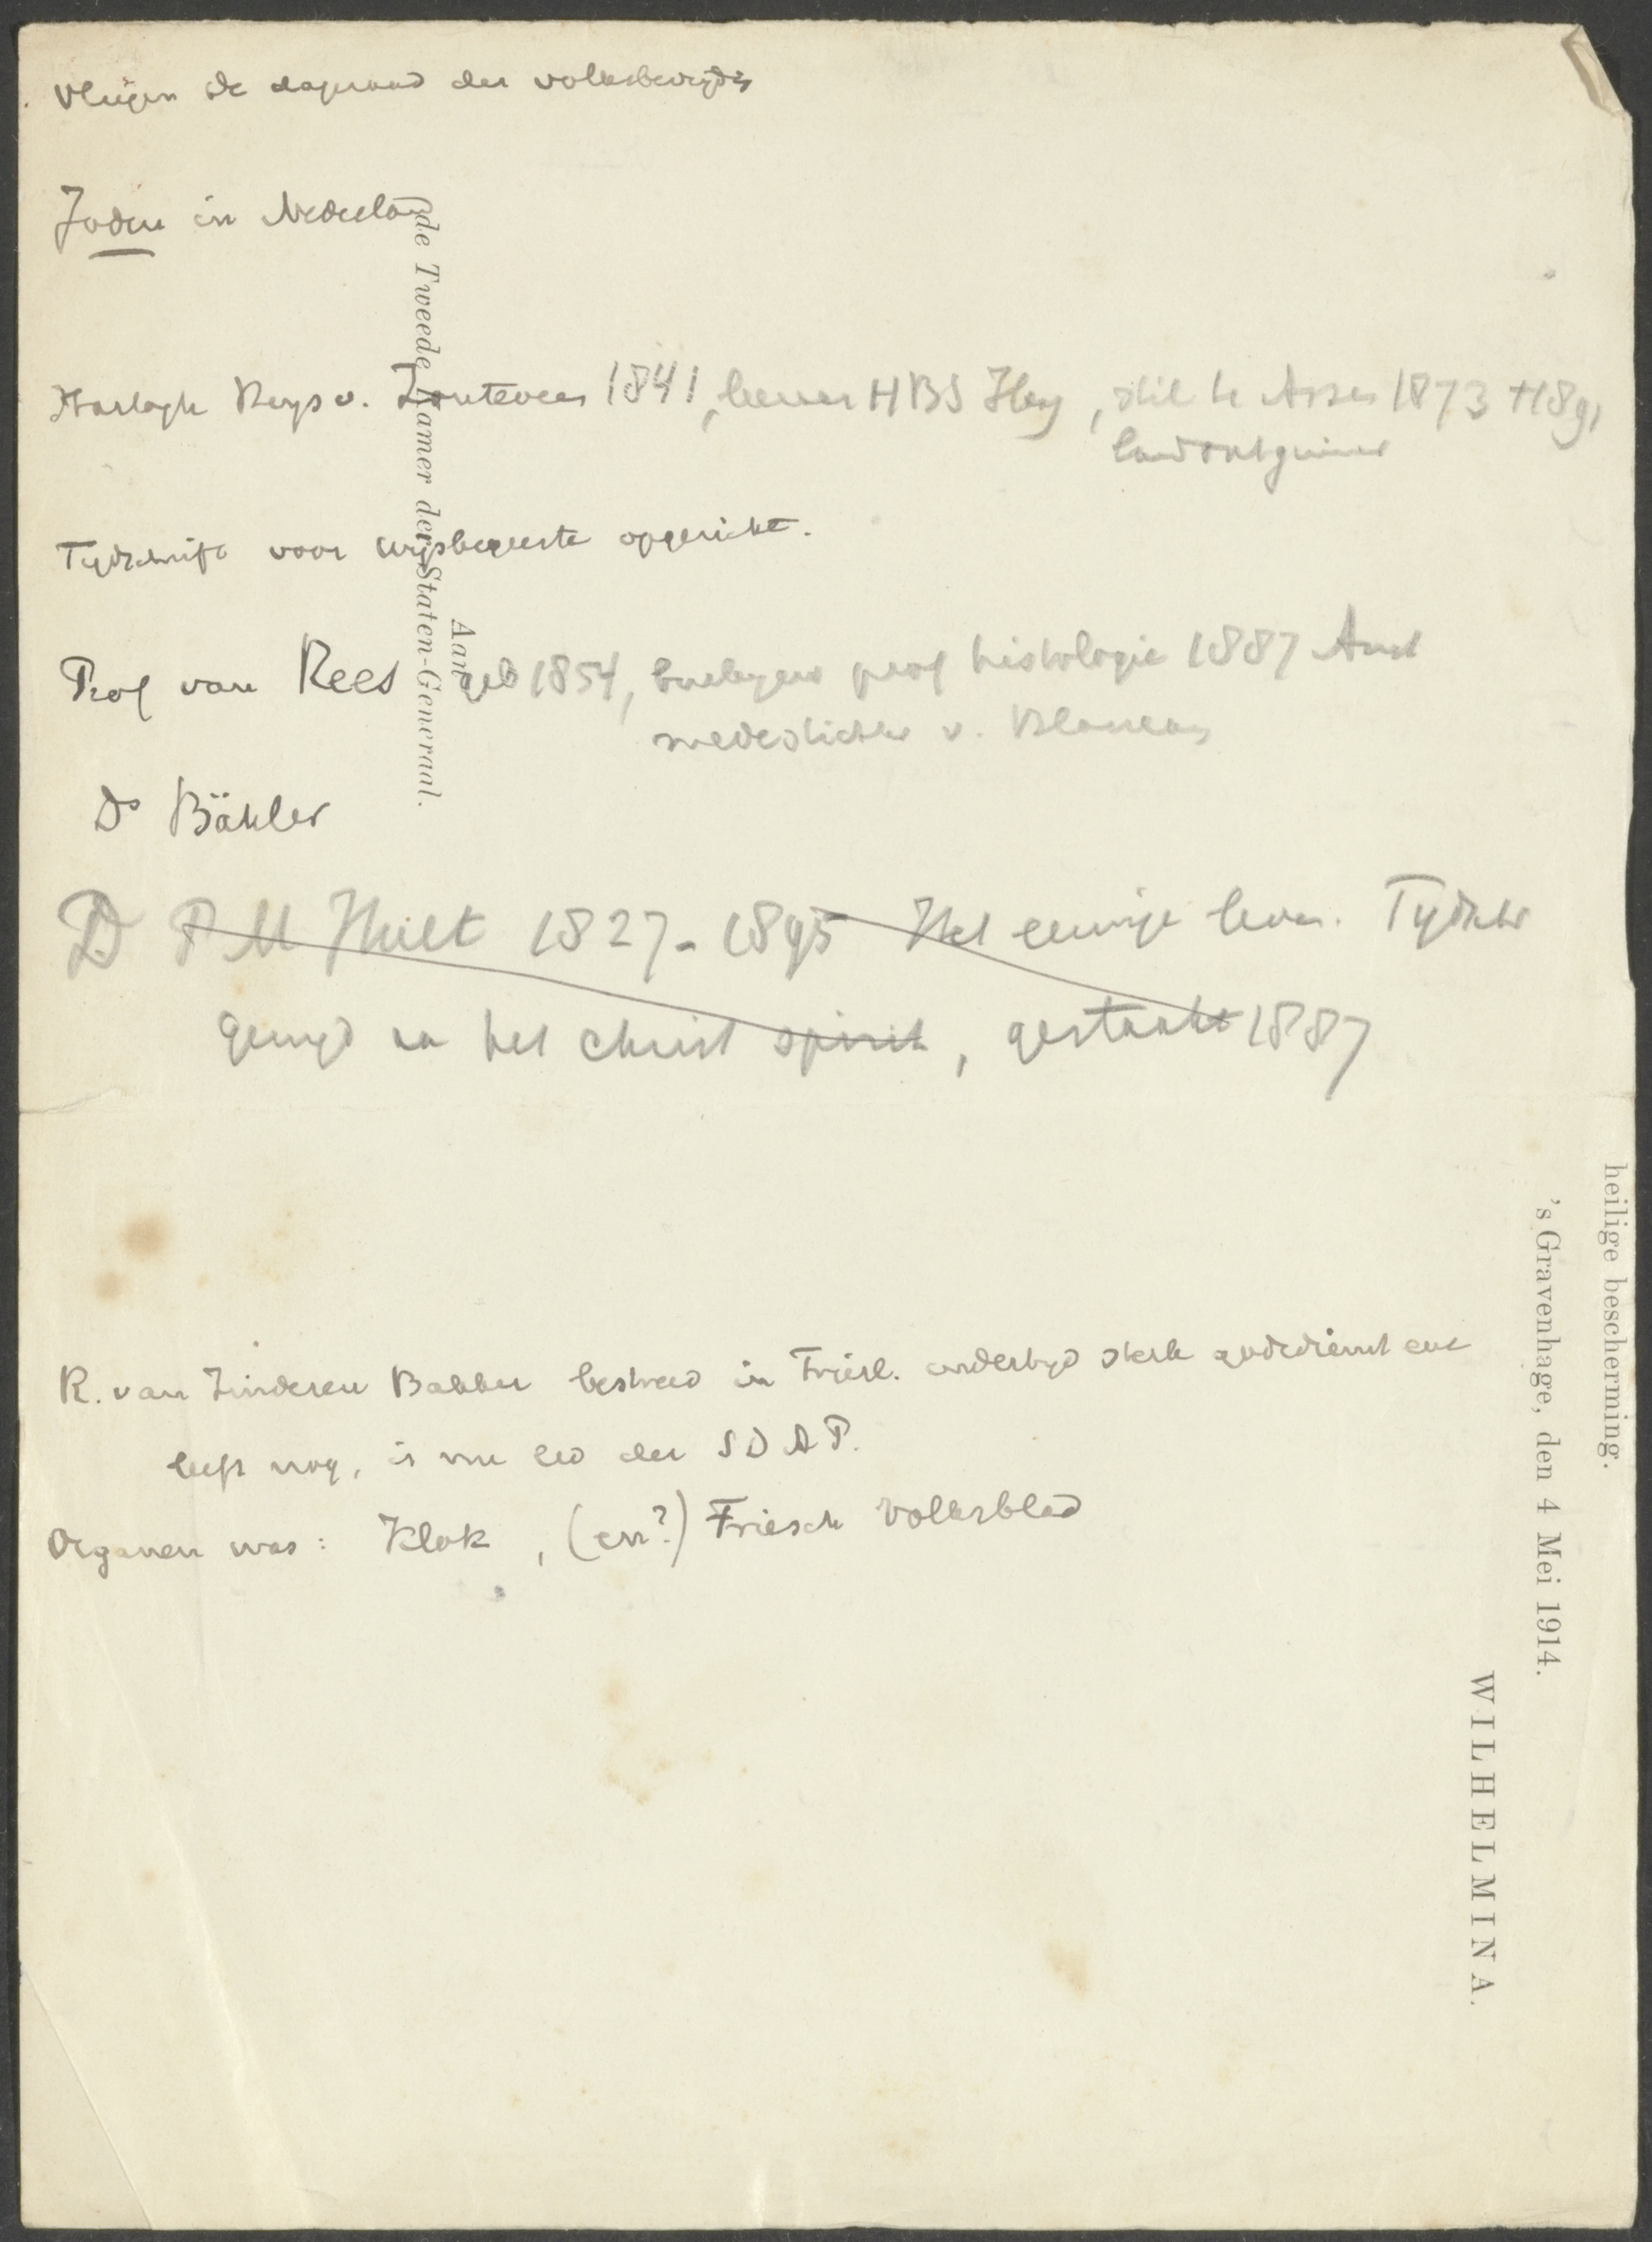 Vliegen De dageraad der volksbevrijdig
Joden in Nederland
Hartogh Heys v. Zouteveen 1841, leeraar HBS Hag, stil te Assen 1873 † 189,
landontginner
Tijdschrift voor wijsbegeerte opgericht.
Prof van Rees geb 1854, buitengew prof histologie 1887 Amst
medestichter v. Blaricum
Ds Bähler
D P M Huet 1827-1895 Het eeuwige leven. Tijdschr
gewijd aan het christ spirit, gestaakt 1887
R. van Zinderen Bakker bestreed in Friesl. indertijd sterk godsdienst enz
leeft nog, is nu lid der SDAP.
Organen was: Klok, (en?) Friesch Volksblad
Aan
de Tweede Kamer der Staten-Generaal.
heilige bescherming.
's Gravenhage, den 4 Mei 1914.
WILHELMINA.